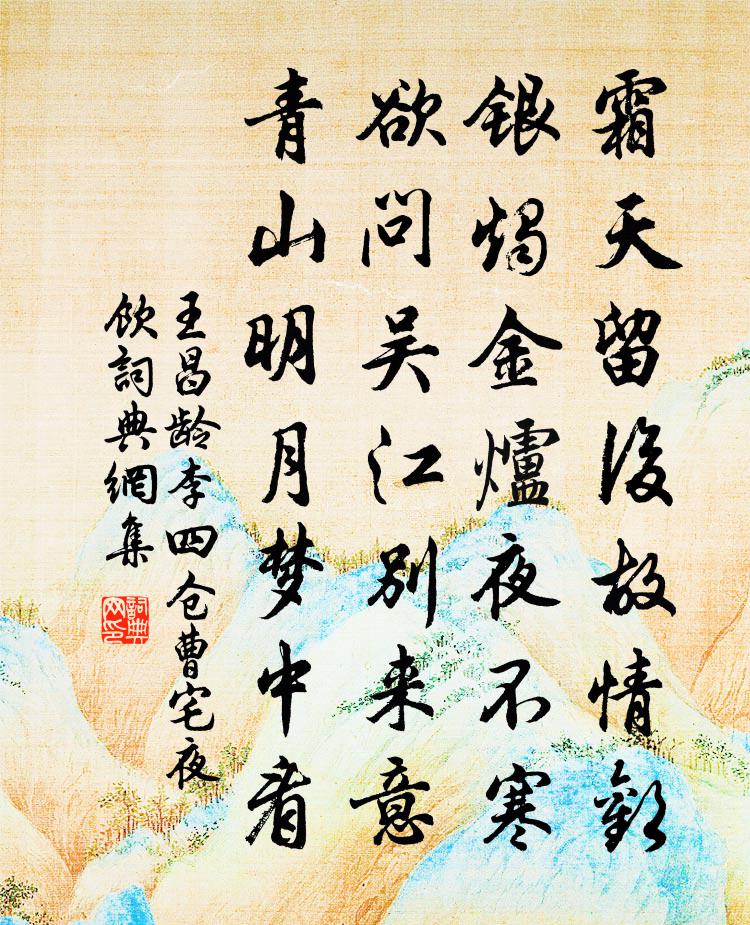 霜天留後故情歡
銀燭金爐夜不寒
欲問吴江别来意
青山明月梦中看
王昌龄李四仓曹宅夜
饮詞典網集
詞典网印